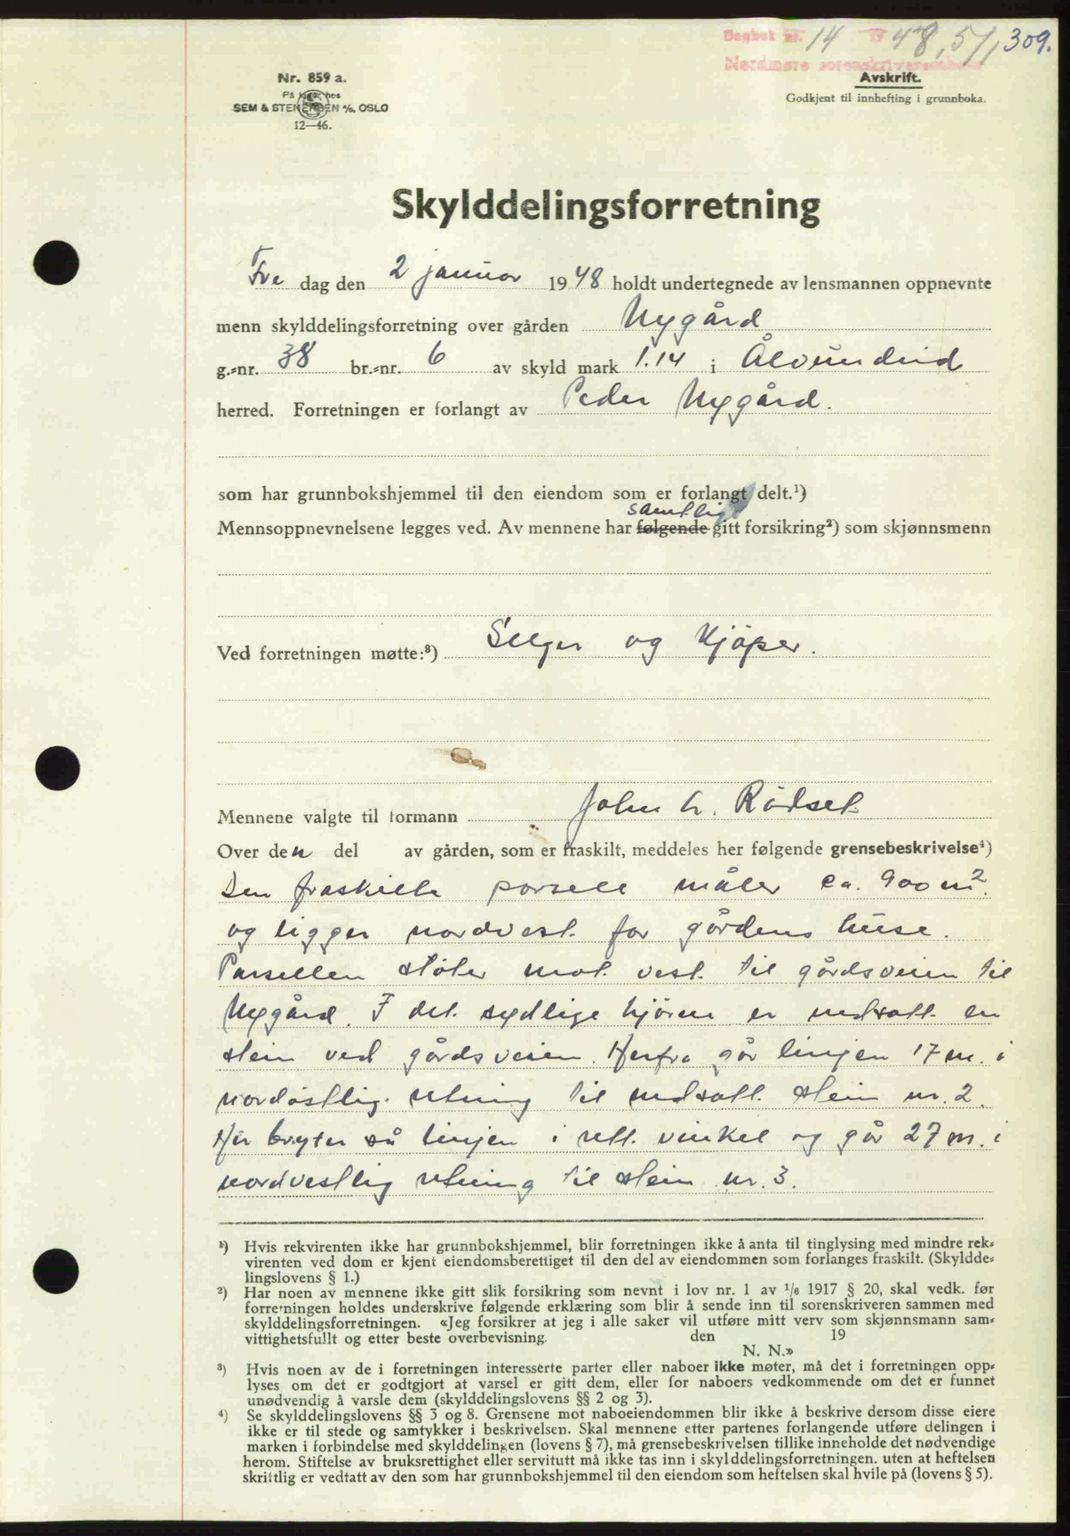 Dagbok nr. 14 1948, 5/1 309.
Nordmøre sorenskriverembede
Nr. 859 a.
På lager hos
SEM & STENERSEN A/S, OSLO
12—46.
Avskrift.
Godkjent til innhefting i grunnboka.
Skylddelingsforretning
Fre dag den 2 januar 1948 holdt undertegnede av lensmannen oppnevnte
menn skylddelingsforretning over gården Nygård
g.-nr. 38 br.-nr. 6 av skyld mark 1.14 i Ålvundeid
herred. Forretningen er forlangt av Peder Nygård.
som har grunnbokshjemmel til den eiendom som er forlangt delt.¹)
samtlige
Mennsoppnevnelsene legges ved. Av mennene har følgende gitt forsikring²) som skjønnsmenn
Ved forretningen møtte:³) Selger og Kjøper.
Mennene valgte til formann John L. Rødset
Over den del av gården, som er fraskilt, meddeles her følgende grensebeskrivelse⁴)
Den fraskilte parsell måler ca. 900 m².
og ligger nordvest for gårdens huse.
Parsellen støter mot vest til gårdsveien til
Nygård. I det sydlige hjørne er nedsatt en
stein ved gårdsveien. Herfra går linjen 17 m. i
nordøstlig retning til nedsatt stein nr. 2.
Her bryter så linjen i rett vinkel og går 27 m. i
nordvestlig retning til stein nr. 3.
¹) Hvis rekvirenten ikke har grunnbokshjemmel, blir forretningen ikke å anta til tinglysing med mindre rek-
virenten ved dom er kjent eiendomsberettiget til den del av eiendommen som forlanges fraskilt. (Skyldde-
lingslovens § 1.)
²) Har noen av mennene ikke gitt slik forsikring som nevnt i lov nr. 1 av ¹/₆ 1917 § 20, skal vedk. før
forretningen holdes underskrive følgende erklæring som blir å sende inn til sorenskriveren sammen med
skylddelingsforretningen. «Jeg forsikrer at jeg i alle saker vil utføre mitt verv som skjønnsmann sam-
vittighetsfullt og etter beste overbevisning. den 19
N. N.»
³) Hvis noen av de i forretningen interesserte parter eller naboer ikke møter, må det i forretningen opp-
lyses om det er godtgjort at varsel er gitt dem, eller for naboers vedkommende om det er funnet
unødvendig å varsle dem (skylddelingslovens §§ 2 og 3).
⁴) Se skylddelingslovens §§ 3 og 8. Grensene mot naboeiendommen blir ikke å beskrive dersom disse eiere
ikke er til stede og samtykker i beskrivelsen. Skal mennene etter partenes forlangende utføre delingen i
marken i forbindelse med skylddelingen (lovens § 7), må grensebeskrivelsen tillike inneholde det nødvendige
herom. Stiftelse av bruksrettighet eller servitutt må ikke tas inn i skylddelingsforretningen. uten at heftelsen
skriftlig er vedtatt av den som har grunnbokshjemmel til den eiendom som heftelsen skal hvile på (lovens § 5).